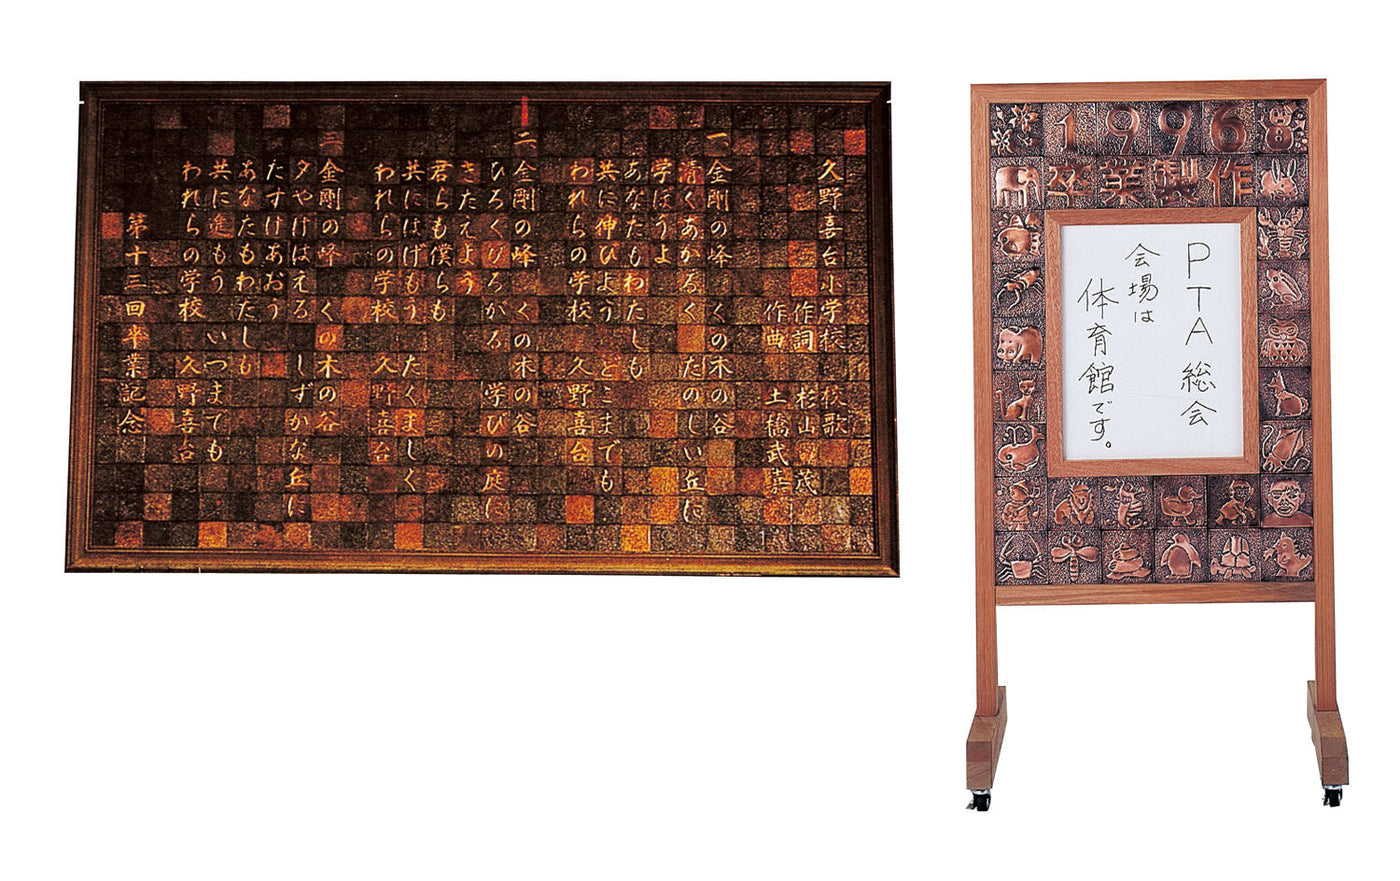 久野喜台小学校 校歌
作詞 杉山 茂
作曲 土橋武嘉
一 金剛の峰 くの木の谷
清くあかるく たのしい丘に
学ぼうよ
あなたもわたしも
共に伸びよう どこまでも
われらの学校 久野喜台
二 金剛の峰 くの木の谷
ひろくひろがる 学びの庭に
きたえよう
君らも僕らも
共にはげもう たくましく
われらの学校 久野喜台
三 金剛の峰 くの木の谷
夕やけはえる しずかな丘に
たすけあおう
あなたもわたしも
共に進もう いつまでも
われらの学校 久野喜台
第十三回卒業記念
1996
卒業製作
PTA総会
会場は
体育館です。